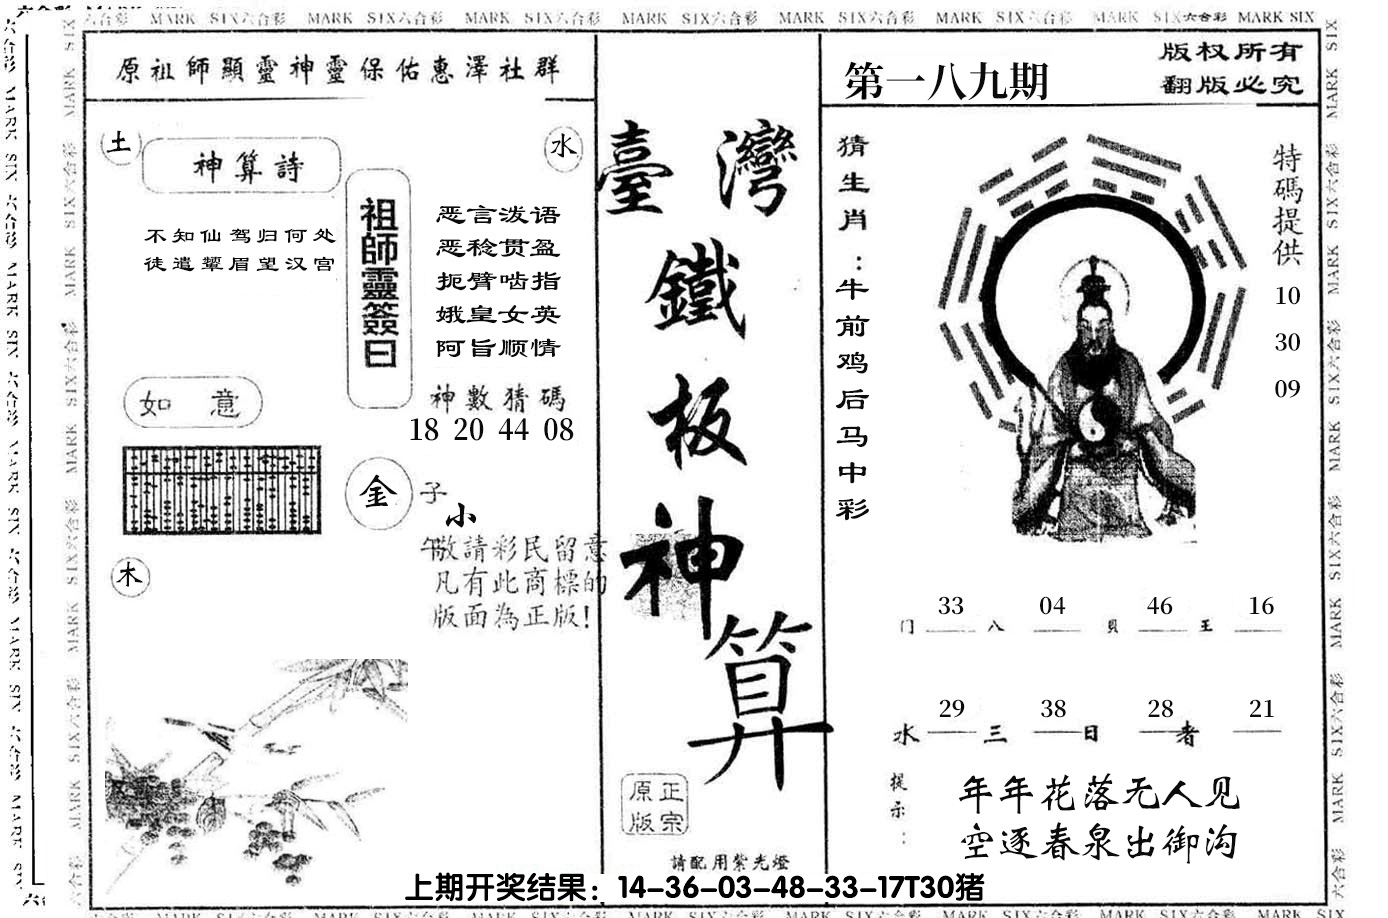 六合彩 MARK SIX六合彩 MARK SIX六合彩 MARK SIX六合彩 MARK SIX六合彩 MARK SIX六合彩 MARK SIX六合彩 MARK SIX六合彩 MARK SIX
原祖師顯靈神靈保佑惠澤社群
土
神算詩
水
不知仙驾归何处
徒遣颦眉望汉宫
祖師靈簽曰
恶言泼语
恶稔贯盈
扼臂啮指
娥皇女英
阿旨顺情
神數猜碼
18 20 44 08
如意
金
子
小
午
敬請彩民留意
凡有此商標的
版面為正版!
木
臺灣
鐵
板
神
算
正宗
原版
請配用紫光燈
第一八九期
版权所有
翻版必究
猜生肖:牛前鸡后马中彩
特碼提供
10
30
09
33 04 46 16
门 八 貝 王
29 38 28 21
水 三 日 者
提示:
年年花落无人见
空逐春泉出御沟
上期开奖结果：14-36-03-48-33-17T30猪